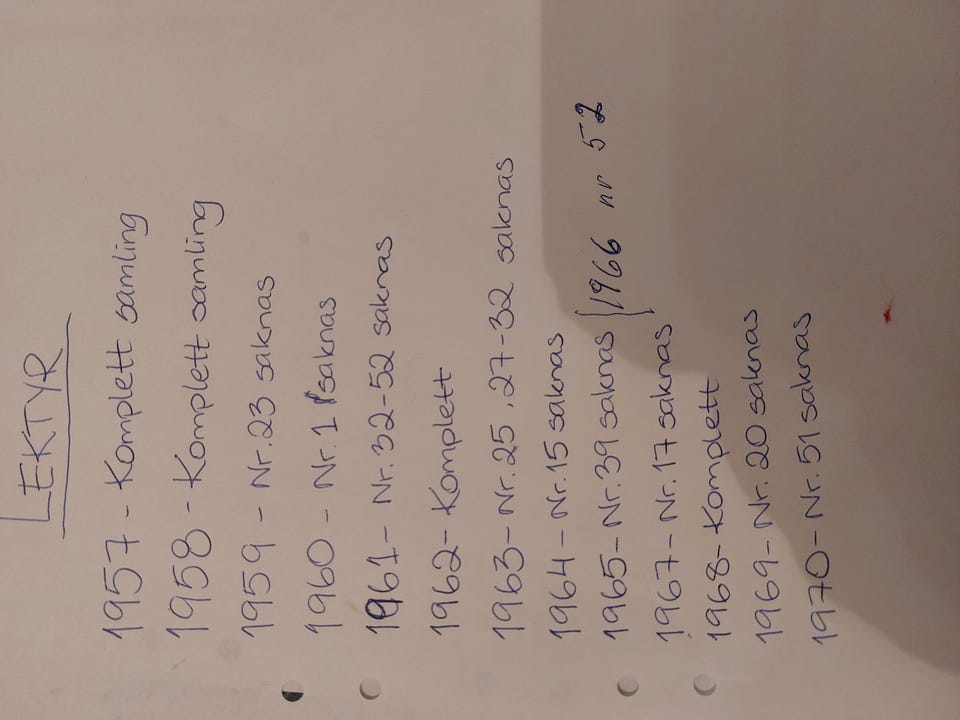 LEKTYR
1957 - Komplett samling
1958 - Komplett samling
1959 - Nr.23 saknas
1960 - Nr.1 saknas
1961 - Nr.32-52 saknas
1962 - Komplett
1963 - Nr.25, 27-32 saknas
1964 - Nr.15 saknas
1965 - Nr.39 saknas
1966 nr 52
1967 - Nr.17 saknas
1968 - Komplett
1969 - Nr.20 saknas
1970 - Nr.51 saknas